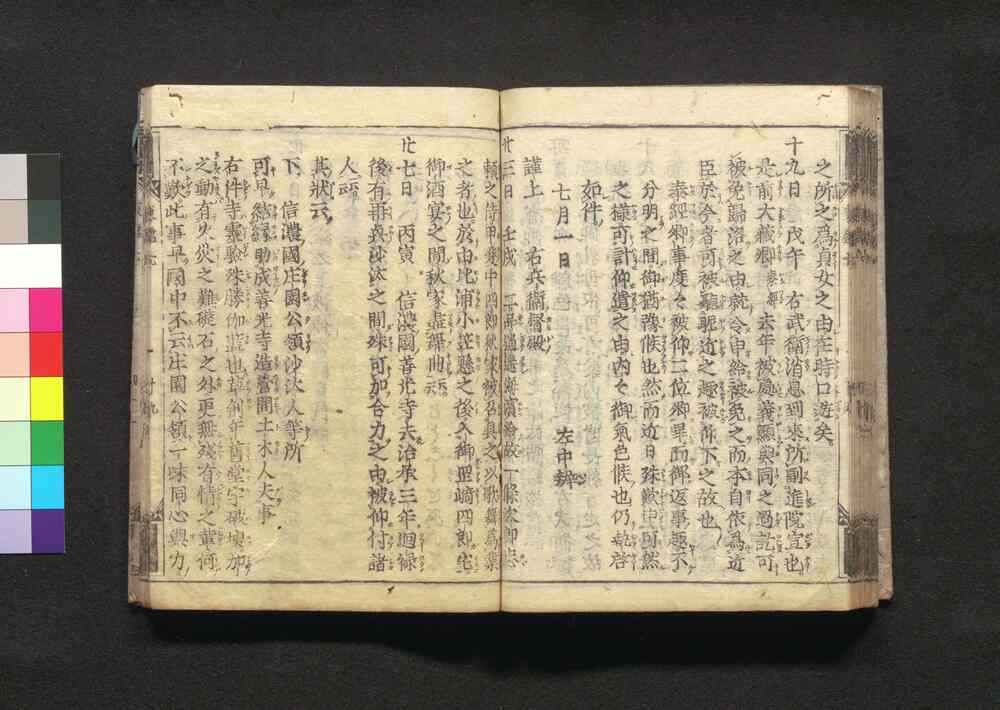 之所之為貞女之由在時口遊矣
十九日 戊午 右武衛消息到來所副進院宣也
是前大藏卿泰經去年被處義顯與同之過訖可
被免歸洛之由就令申給被免之而本自依為近
臣於今者可被聽昵近之趣被仰下之故也
泰經卿事度々被仰二位卿畢而御返事趣不
分明之間御猶豫候也然而近日殊歎申可然
之樣可計仰遣之由內々御氣色候也仍執啓
如件
七月一日 左中辨
謹上 右兵衛督殿
廿三日 壬戌 二品逍遙海濱給故一條次郎忠
賴之侍甲斐中四郎秋家被召具之以歌舞為業
之者也於由比浦小笠懸之後入御岡崎四郎宅
御酒宴之間秋家盡舞曲云云
廿七日 丙寅 信濃國善光寺去治承三年廻祿
後有再興沙汰之間殊可加合力之由被仰付諸
人云云
其狀云
下 信濃國庄園公領沙汰人等所
可早結緣助成善光寺造營間土木人夫事
右件寺靈驗殊勝伽藍也草創年舊堂宇破壞加
之動有火災之難礎石之外更無殘有情之輩何
不歎此事早國中不云庄園公領一味同心與力